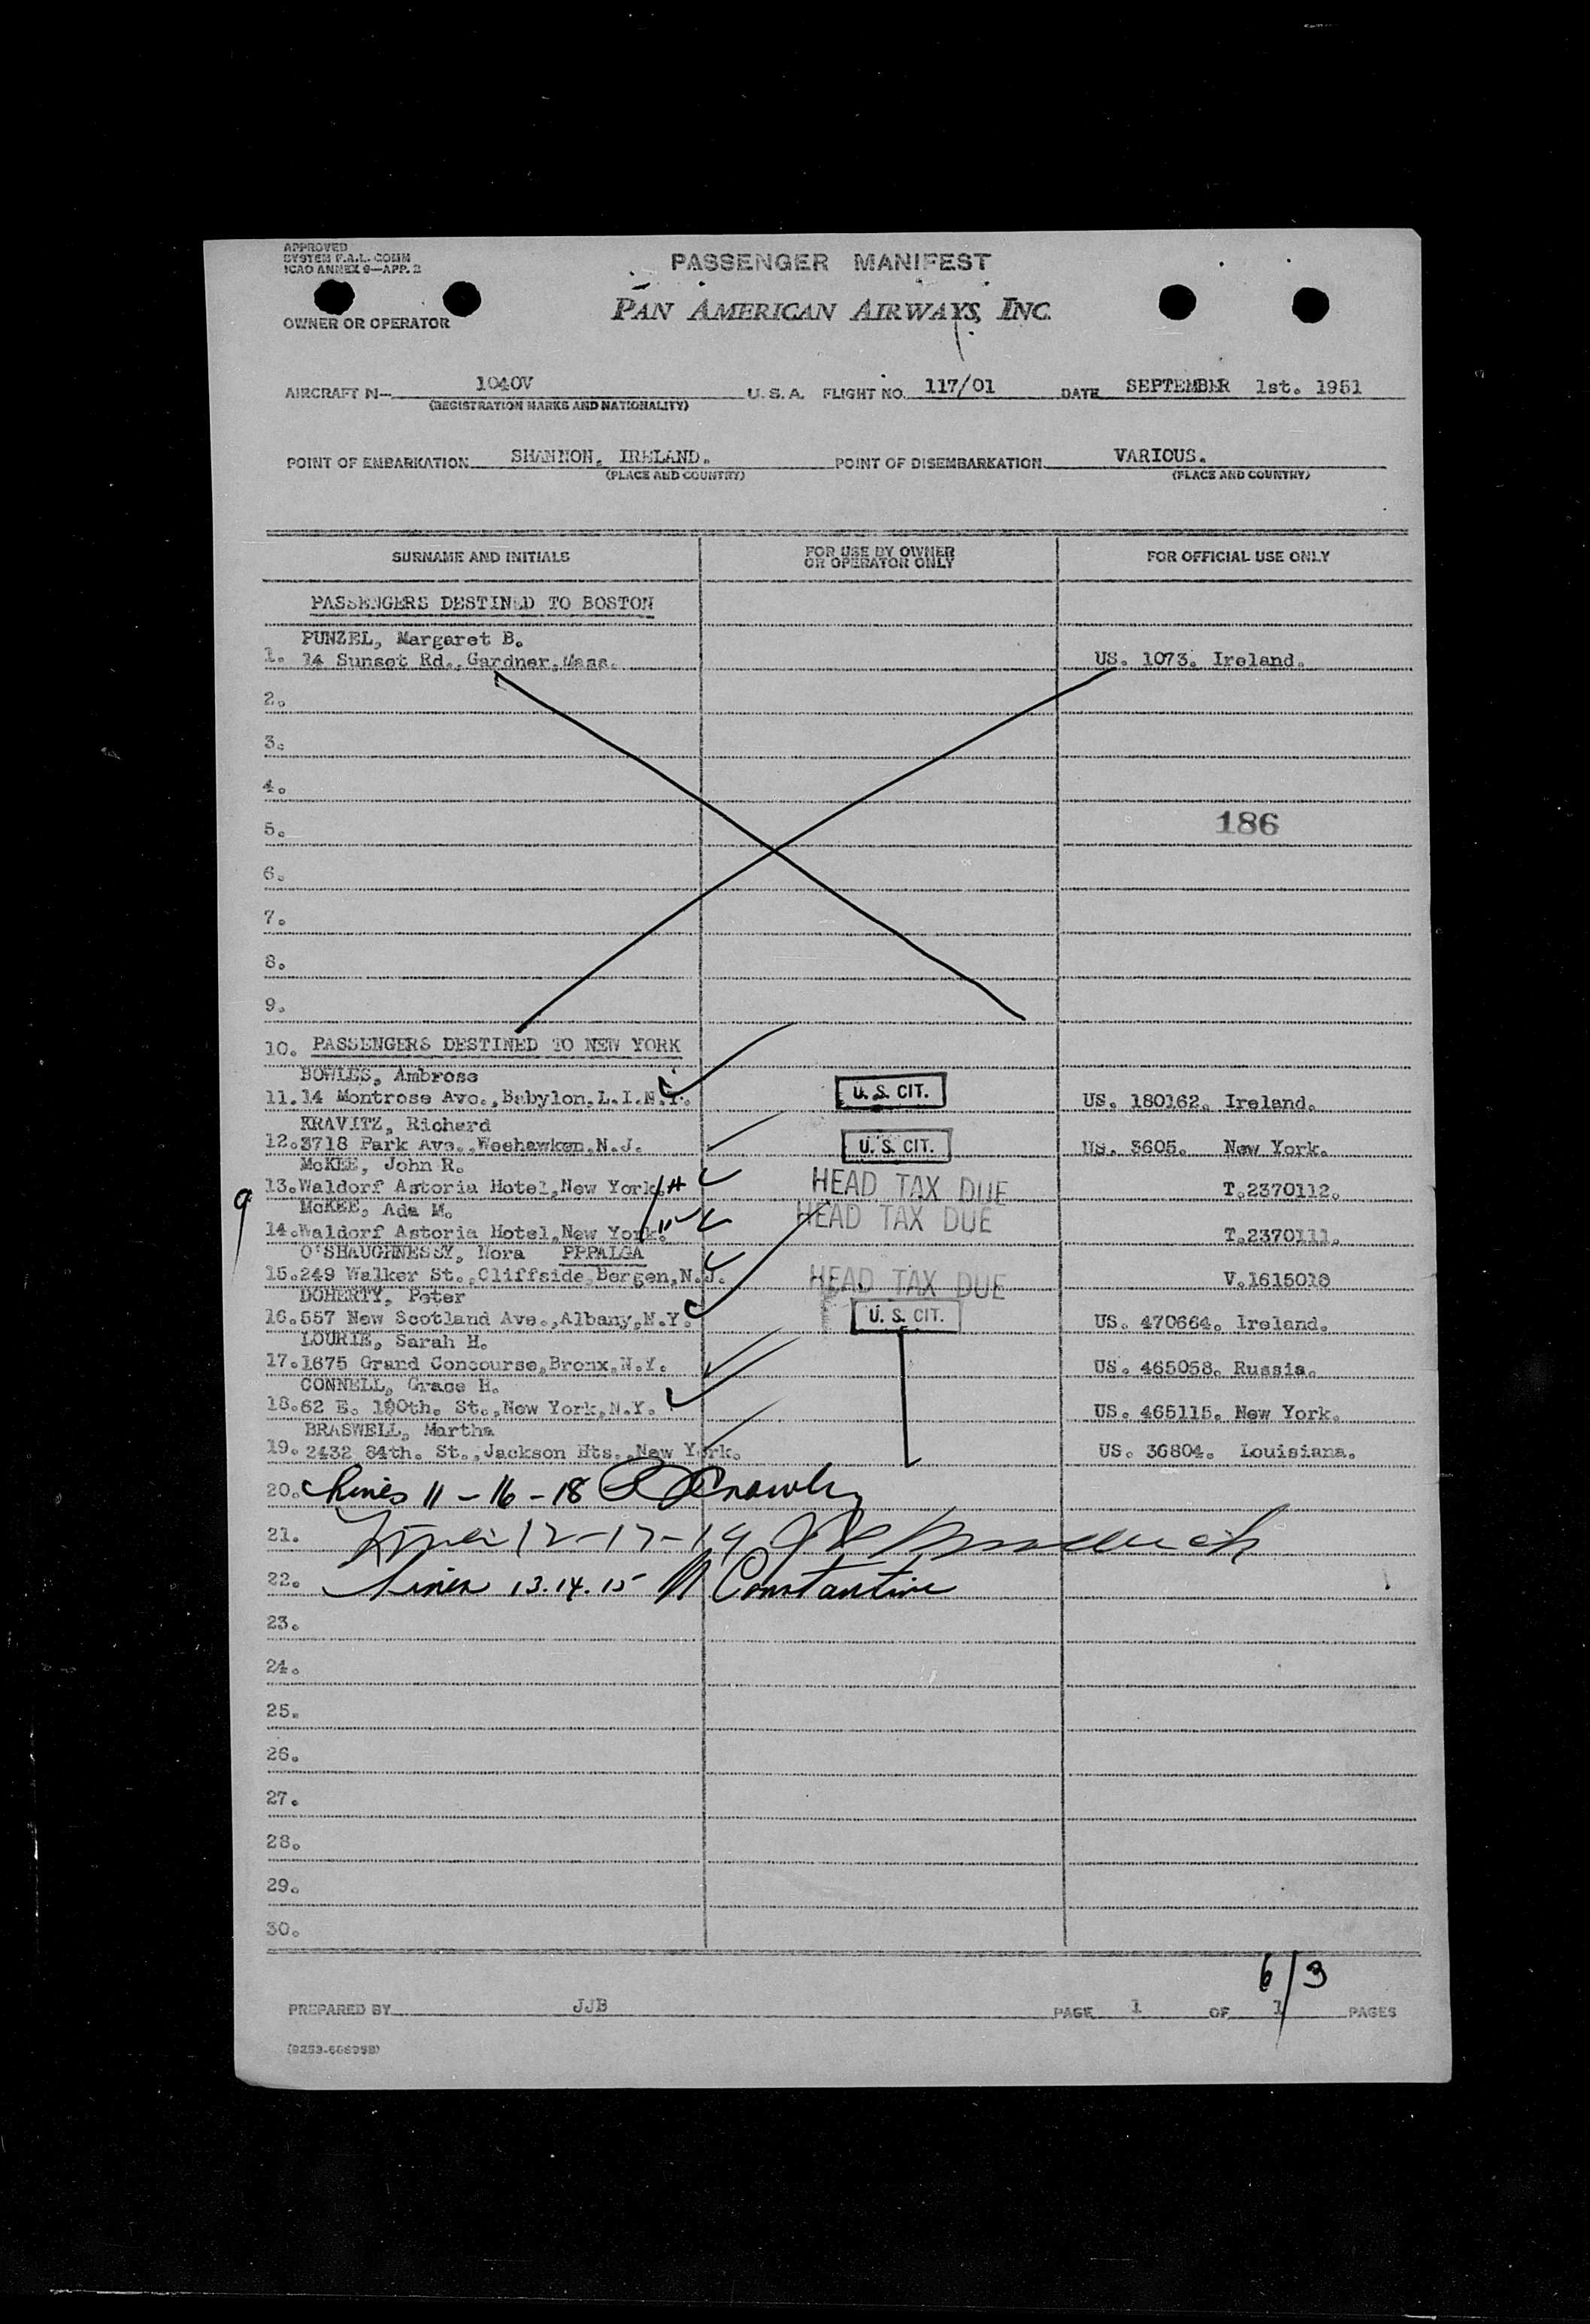 APPROVED
SYSTEM F.A.L. COMM
ICAO ANNEX 9—APP. 2
PASSENGER MANIFEST
PAN AMERICAN AIRWAYS, INC.
OWNER OR OPERATOR
AIRCRAFT N- 1040V U. S. A. FLIGHT NO. 117/01 DATE SEPTEMBER 1st. 1951
(REGISTRATION MARKS AND NATIONALITY)
POINT OF EMBARKATION SHANNON, IRELAND. POINT OF DISEMBARKATION VARIOUS.
(PLACE AND COUNTRY) (PLACE AND COUNTRY)
SURNAME AND INITIALS FOR USE BY OWNER OR OPERATOR ONLY FOR OFFICIAL USE ONLY
PASSENGERS DESTINED TO BOSTON
PUNZEL, Margaret B.
1. 14 Sunset Rd., Gardner, Mass. US. 1073. Ireland.
2.
3.
4.
5. 186
6.
7.
8.
9.
10. PASSENGERS DESTINED TO NEW YORK
BOWLES, Ambrose
11. 14 Montrose Ave., Babylon, L.I.N.Y. U. S. CIT. US. 180162. Ireland.
KRAVITZ, Richard
12. 3718 Park Ave., Weehawken, N.J. U. S. CIT. US. 3605. New York.
McKEE, John R.
13. Waldorf Astoria Hotel, New York. HEAD TAX DUE T.2370112.
McKEE, Ada M.
14. Waldorf Astoria Hotel, New York. HEAD TAX DUE T.2370111.
O'SHAUGHNESSY, Nora PPPALGA
15. 249 Walker St., Cliffside, Bergen, N.J. HEAD TAX DUE V.1615018
DOHERTY, Peter
16. 557 New Scotland Ave., Albany, N.Y. U. S. CIT. US. 470664. Ireland.
LOURIE, Sarah H.
17. 1675 Grand Concourse, Bronx, N.Y. US. 465058. Russia.
CONNELL, Grace H.
18. 62 E. 190th. St., New York, N.Y. US. 465115. New York.
BRASWELL, Martha
19. 2432 84th. St., Jackson Hts., New York. US. 36804. Louisiana.
20. Lines 11 - 16 - 18
21. Lines 12-17-19
22. Lines 13.14.15 M Constantine
23.
24.
25.
26.
27.
28.
29.
30.
6/3
PREPARED BY JJB PAGE 1 OF 1 PAGES